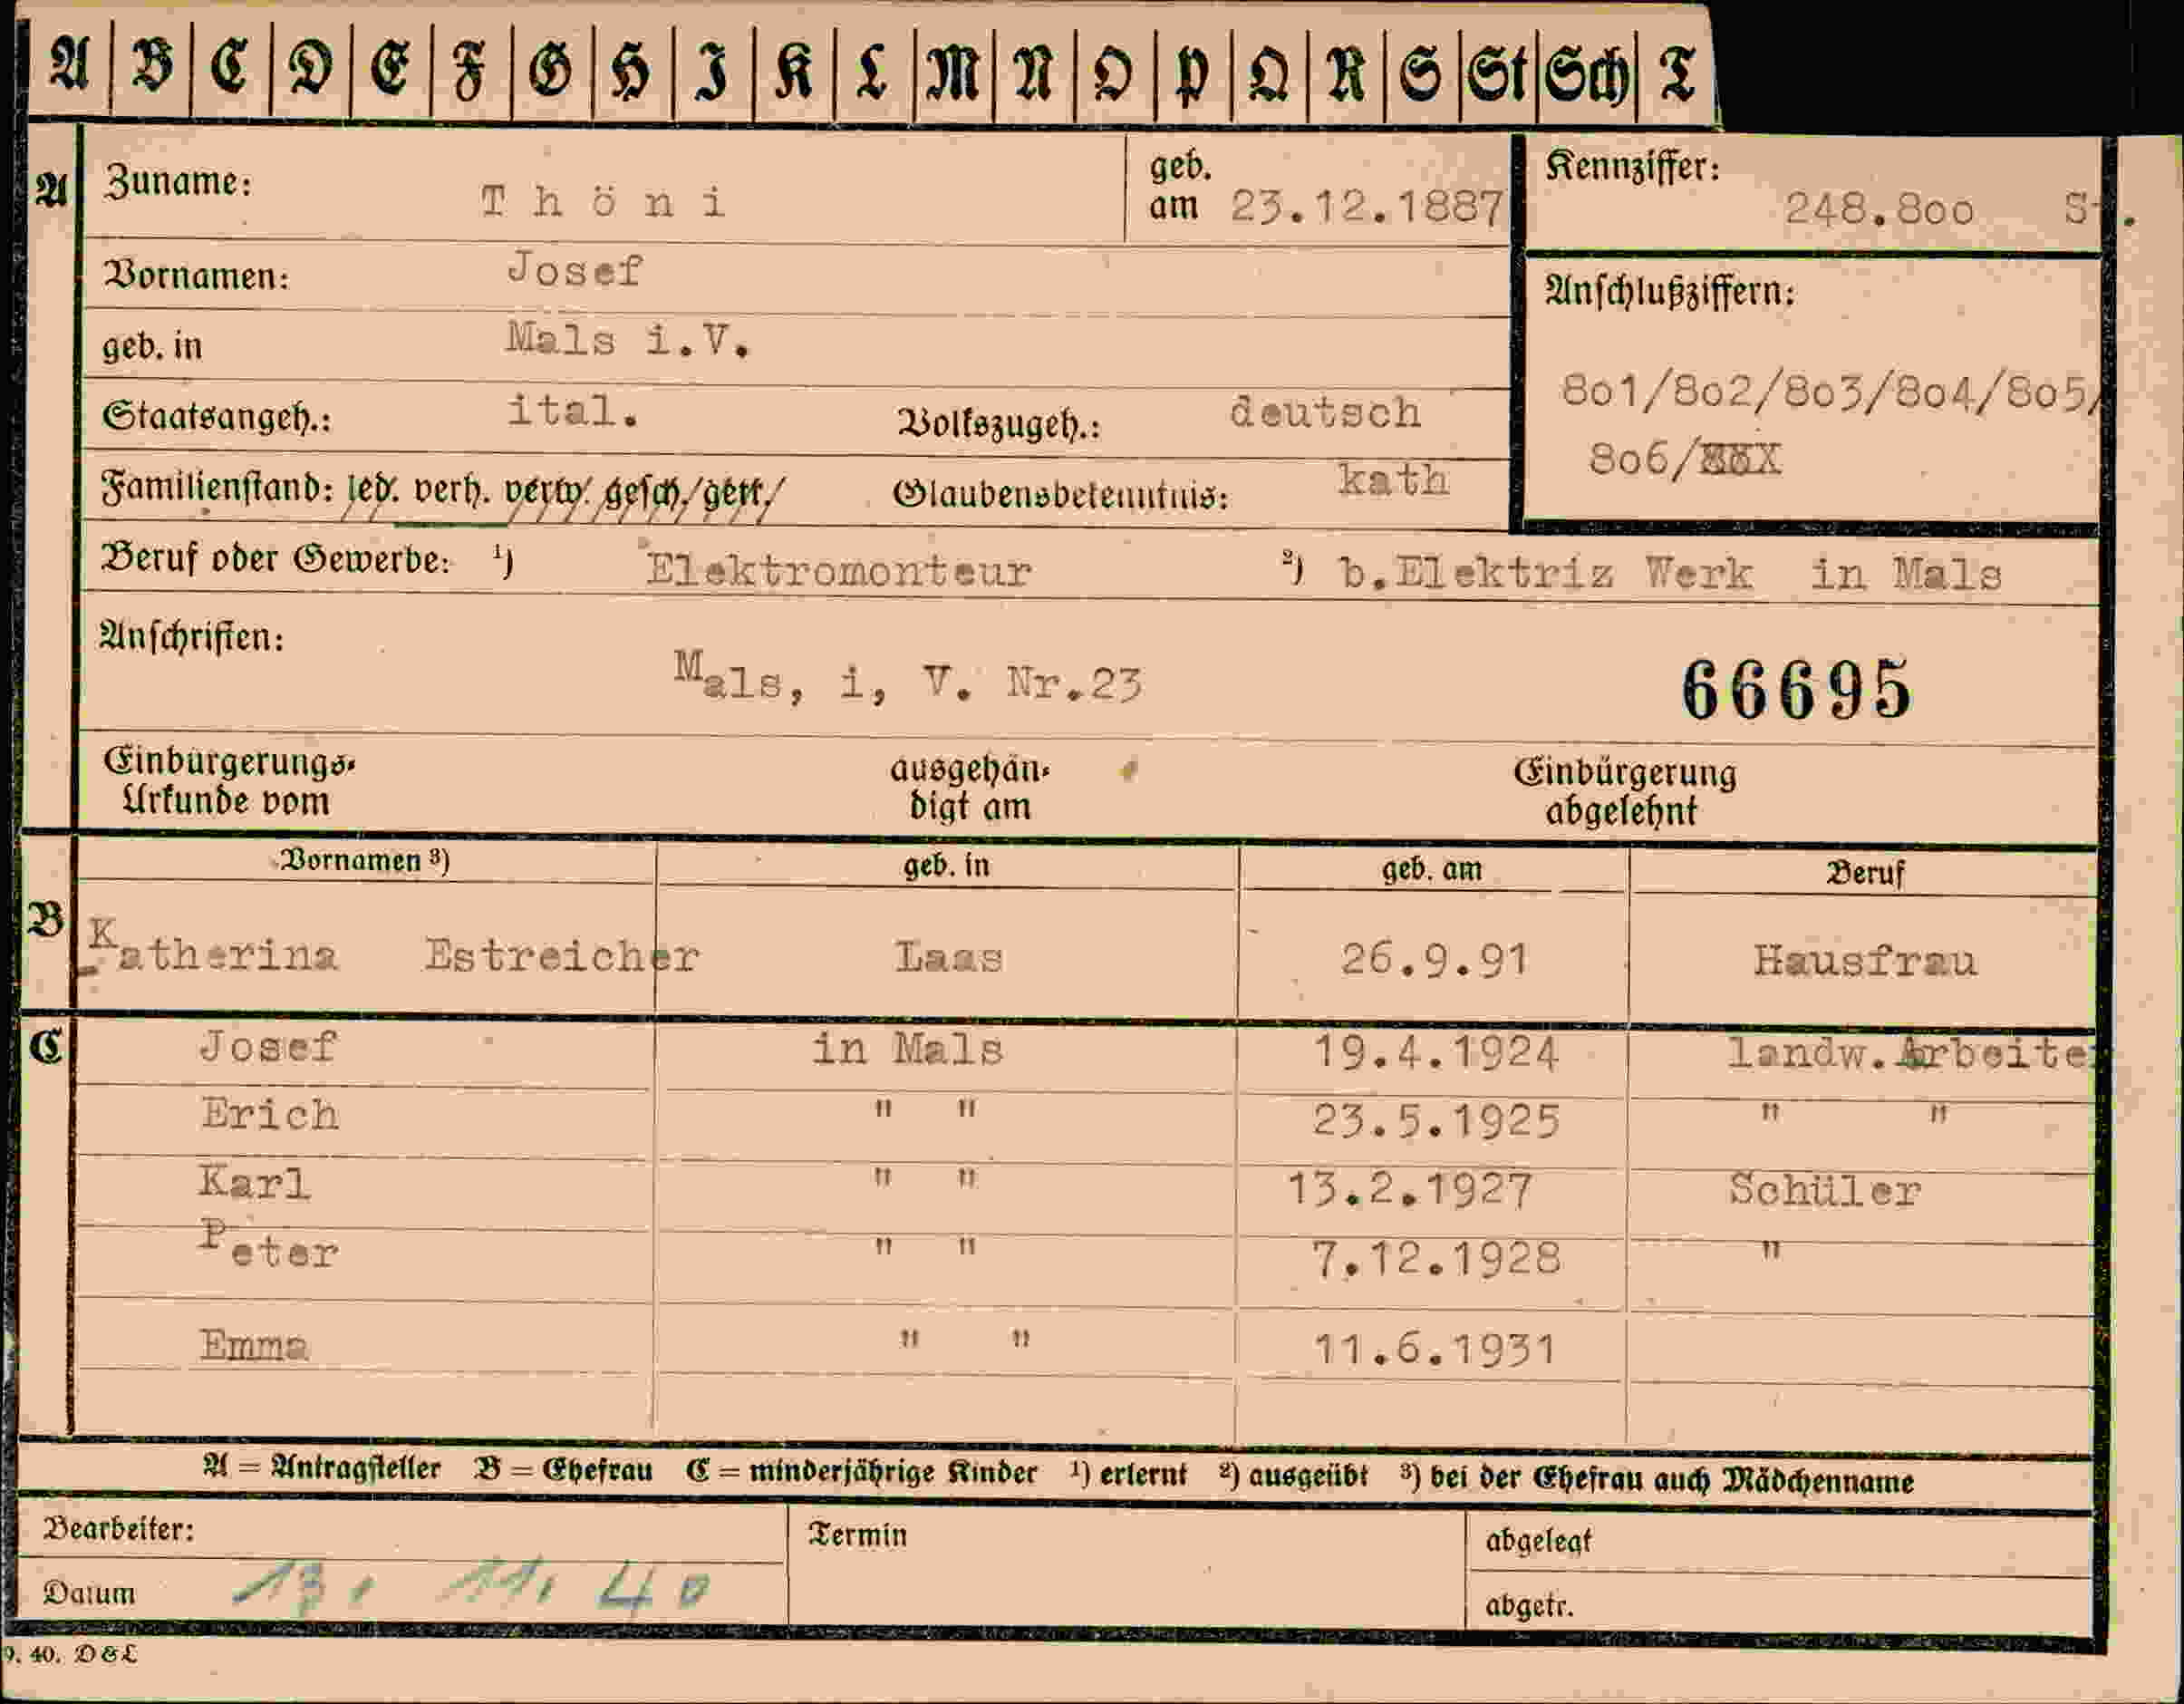 A B C D E F G H I K L M N O P Q R S St Sch T
A Zuname: Thöni geb. am 23.12.1887 Kennziffer: 248.800 St.
Vornamen: Josef
geb. in Mals i.V. Anschlußziffern:
Staatsangeh.: ital. Volkszugeh.: deutsch 801/802/803/804/805/
806/
Familienstand: led. verh. verw. gesch./getr./ Glaubensbekenntnis: kath
Beruf oder Gewerbe: ¹) Elektromonteur ²) b.Elektriz Werk in Mals
Anschriften:
Mals, i, V. Nr.23 66695
Einbürgerungs- ausgehän- Einbürgerung
Urkunde vom digt am abgelehnt
Vornamen ³) geb. in geb. am Beruf
B Katherina Estreicher Laas 26.9.91 Hausfrau
C Josef in Mals 19.4.1924 landw.Arbeiter
Erich " " 23.5.1925 " "
Karl " " 13.2.1927 Schüler
Peter " " 7.12.1928 "
Emma " " 11.6.1931
A = Antragsteller B = Ehefrau C = minderjährige Kinder ¹) erlernt ²) ausgeübt ³) bei der Ehefrau auch Mädchenname
Bearbeiter: Termin abgelegt
Datum 13. 11. 40 abgetr.
9. 40. D & L